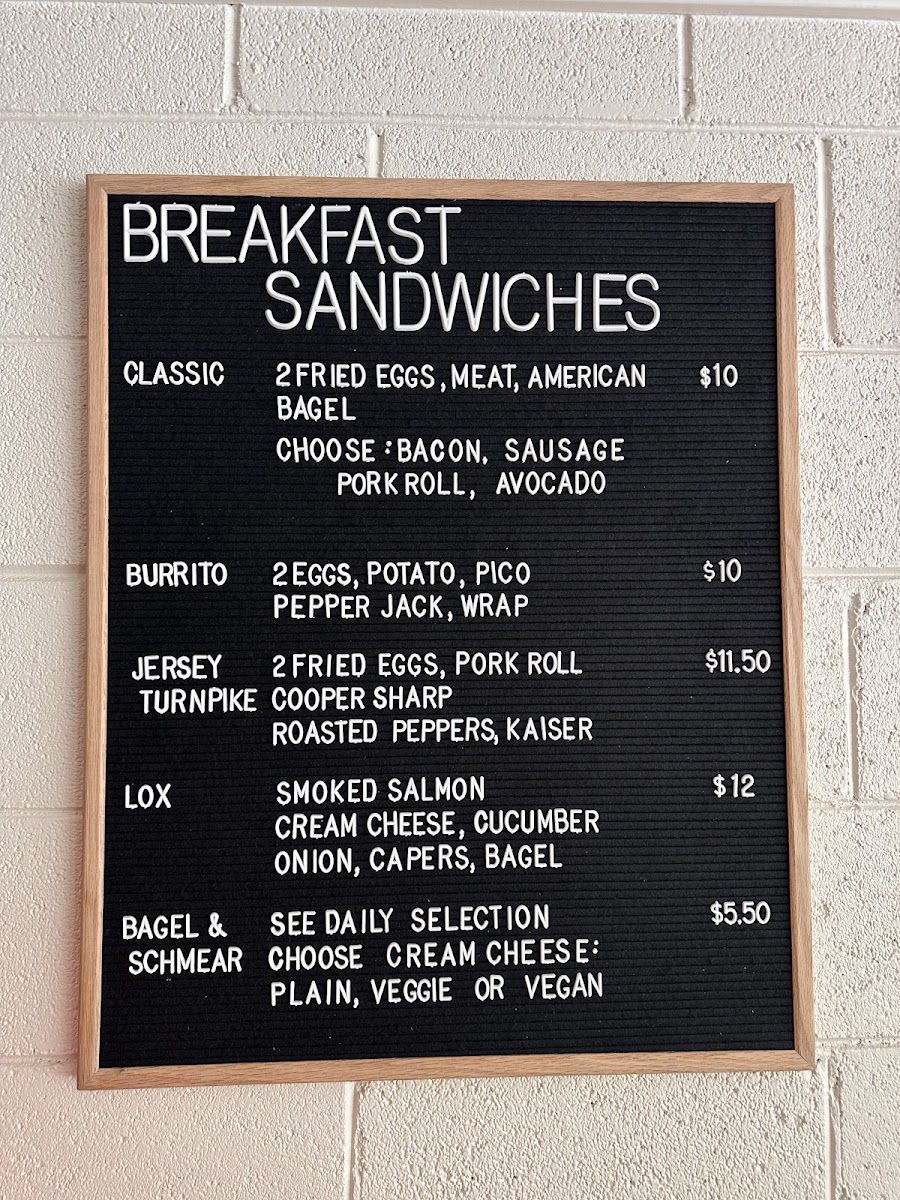 BREAKFAST
SANDWICHES
CLASSIC 2 FRIED EGGS, MEAT, AMERICAN $10
BAGEL
CHOOSE: BACON, SAUSAGE
PORK ROLL, AVOCADO
BURRITO 2 EGGS, POTATO, PICO $10
PEPPER JACK, WRAP
JERSEY 2 FRIED EGGS, PORK ROLL $11.50
TURNPIKE COOPER SHARP
ROASTED PEPPERS, KAISER
LOX SMOKED SALMON $12
CREAM CHEESE, CUCUMBER
ONION, CAPERS, BAGEL
BAGEL & SEE DAILY SELECTION $5.50
SCHMEAR CHOOSE CREAM CHEESE:
PLAIN, VEGGIE OR VEGAN